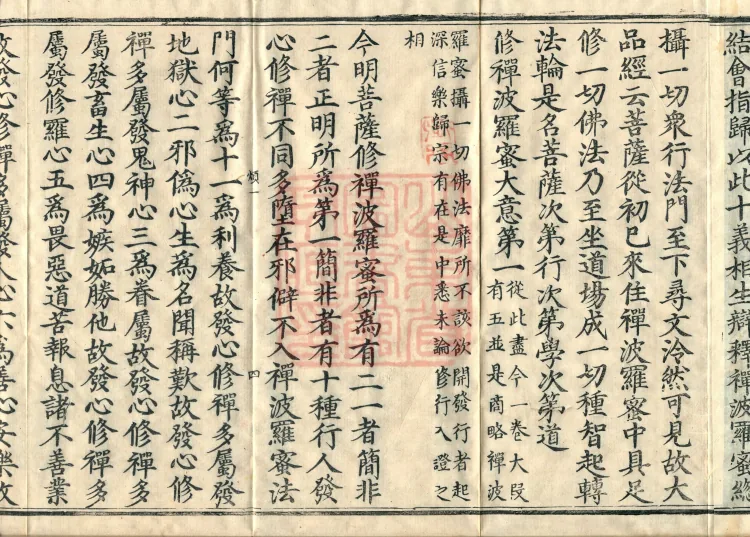 結會指歸以此十義相生辯釋禪波羅蜜總
攝一切衆行法門至下尋文泠然可見故大
品經云菩薩從初已來住禪波羅蜜中具足
修一切佛法乃至坐道場成一切種智起轉
法輪是名菩薩次第行次第學次第道
修禪波羅蜜大意第一
從此盡今一卷大段
有五並是商略禪波
羅蜜攝一切佛法靡所不該欲開發行者起
深信樂歸宗有在是中悉未論修行入證之
相
今明菩薩修禪波羅蜜所爲有二一者簡非
二者正明所爲第一簡非者有十種行人發
心修禪不同多墮在邪僻不入禪波羅蜜法
門何等爲十一爲利養故發心修禪多屬發
地獄心二邪僞心生爲名聞稱歎故發心修
禪多屬發鬼神心三爲眷屬故發心修禪多
屬發畜生心四爲嫉妬勝他故發心修禪多
屬發修羅心五爲畏惡道苦報息諸不善業
故發心修禪多屬發人心六爲善心安樂故
四